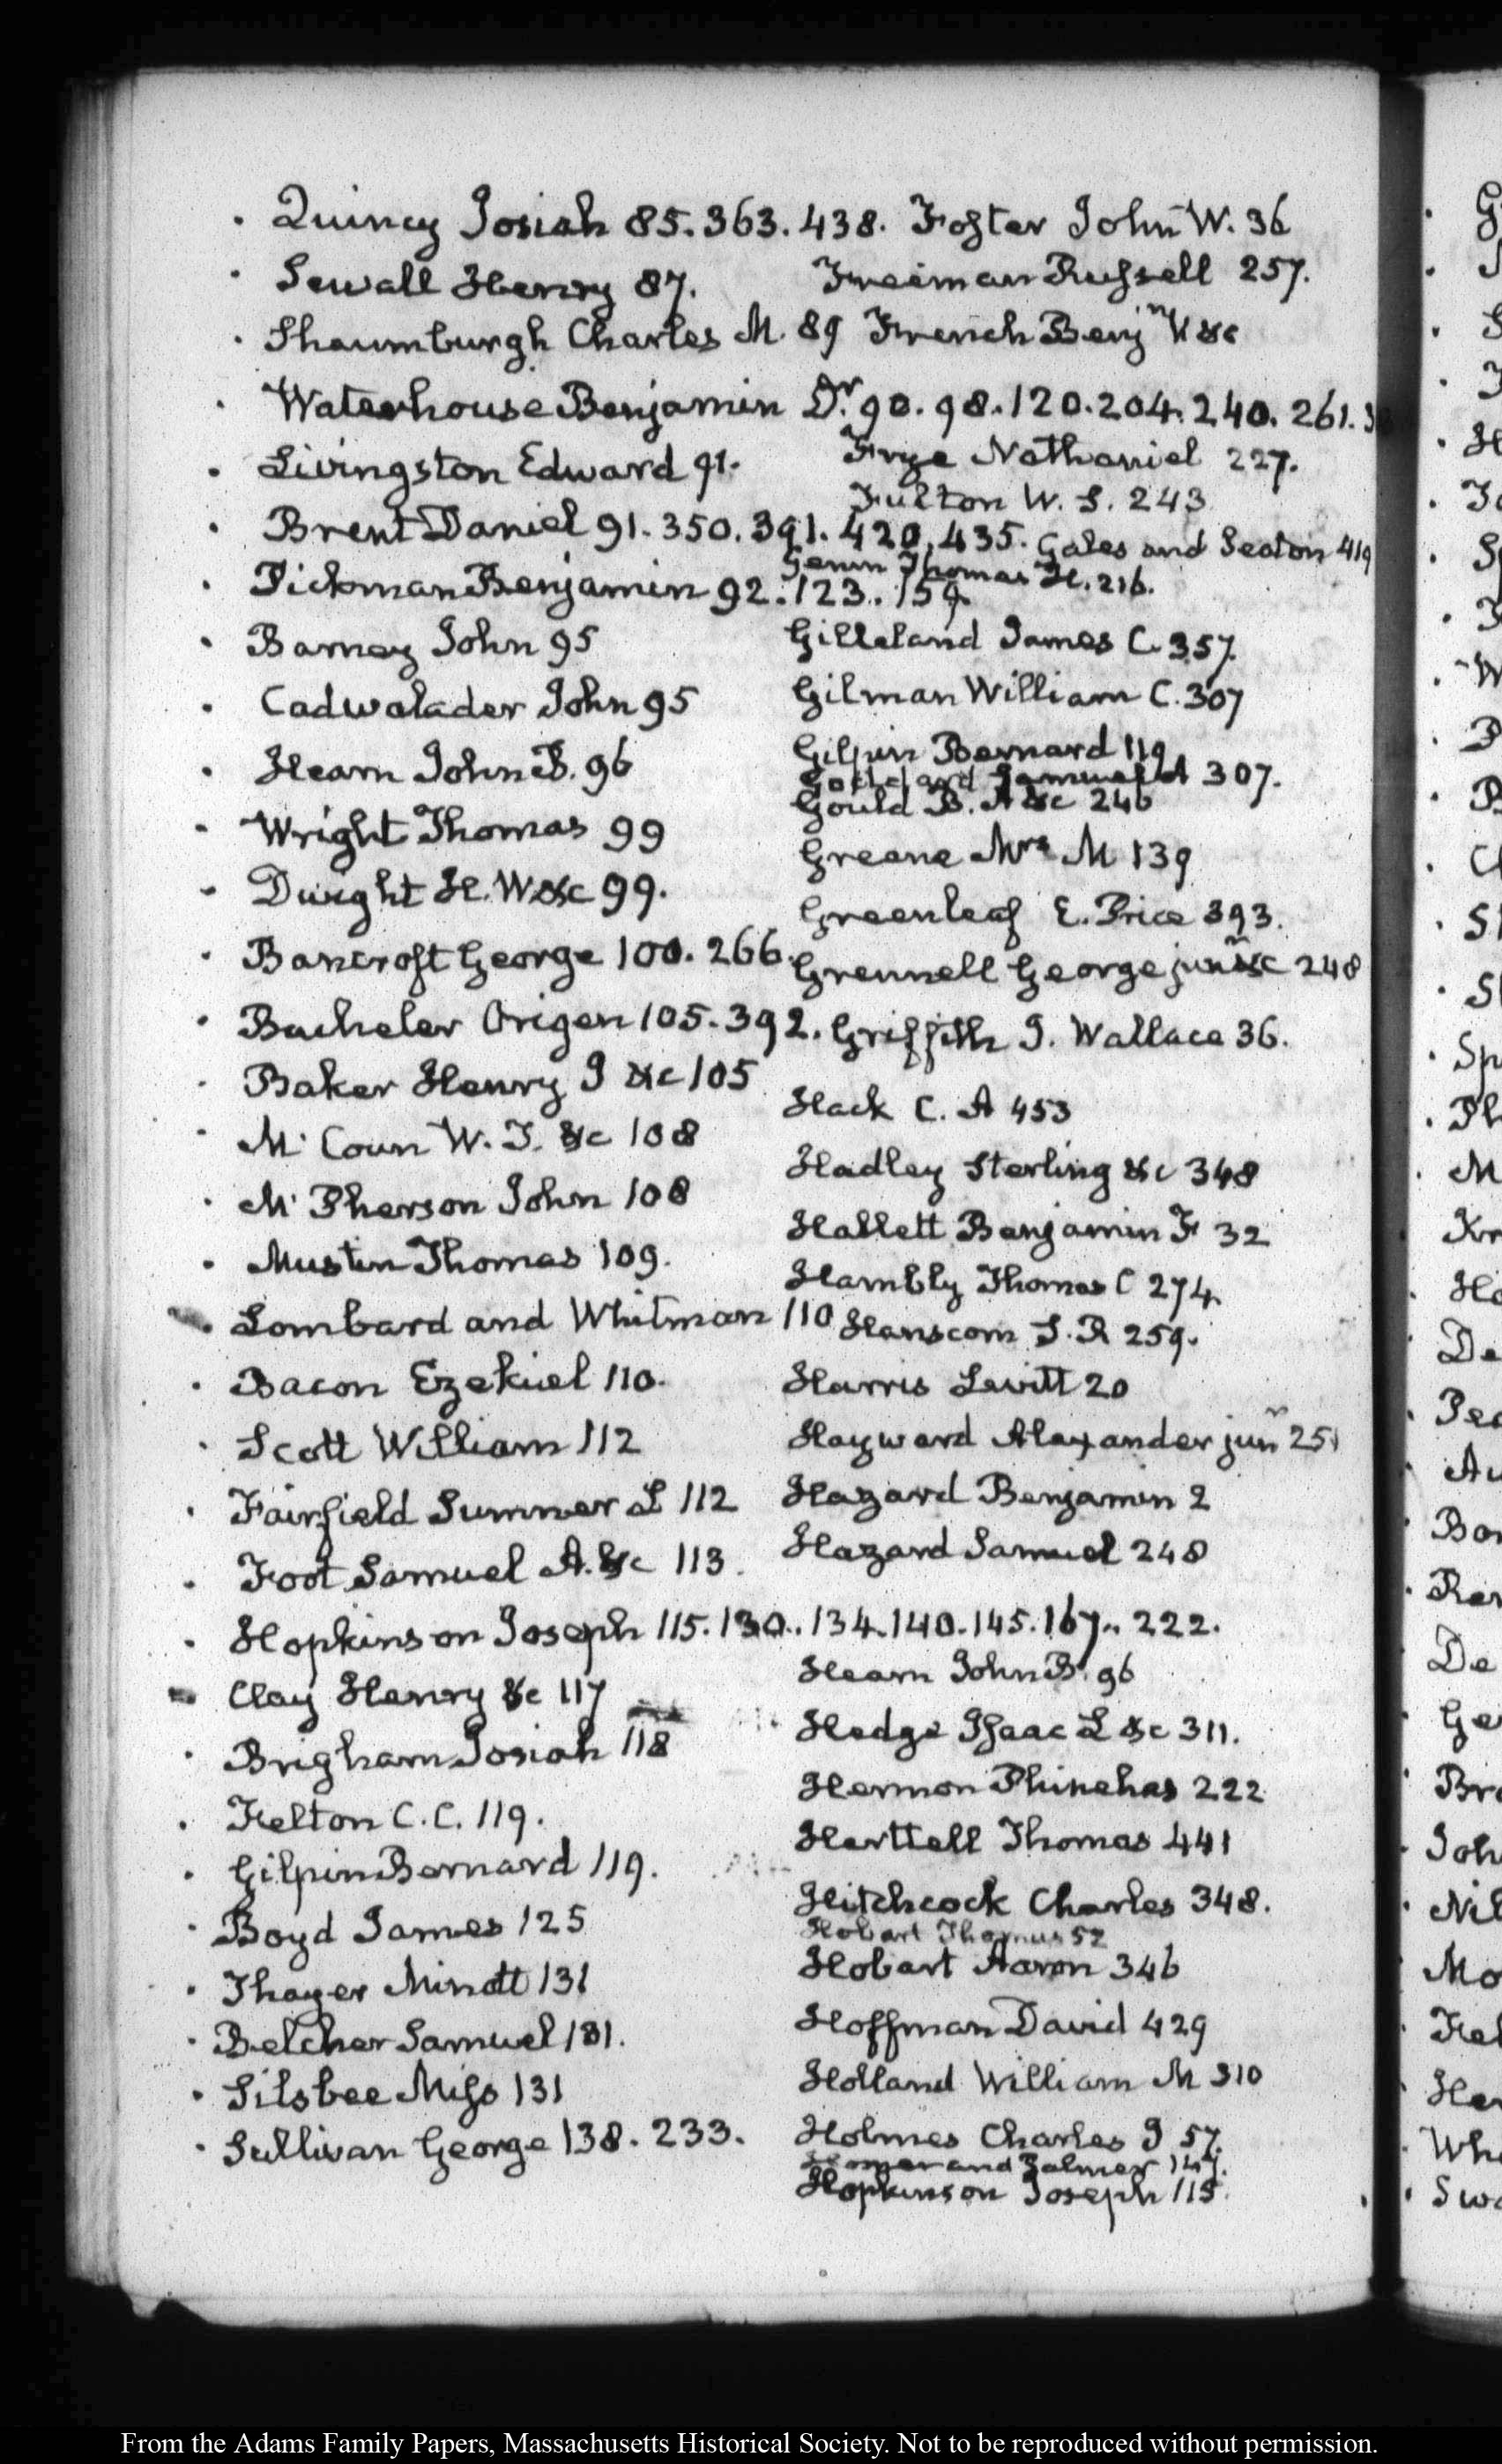 Quincy Josiah 85. 363. 438.
Sewall Henry 87.
Shaumburgh Charles M. 89
Waterhouse Benjamin Dr. 90. 98. 120. 204. 240. 261.
Livingston Edward 91.
Brent Daniel 91. 350. 391. 420. 435.
Pickman Benjamin 92. 123. 159.
Barney John 95
Cadwalader John 95
Hearn John B. 96
Wright Thomas 99
Dwight H. W &c 99.
Bancroft George 100. 266.
Bacheler Origen 105. 392.
Baker Henry J &c 105
Mc Coun W. T. &c 108
Mc Pherson John 108
Mustin Thomas 109.
Lombard and Whitman 110
Bacon Ezekiel 110.
Scott William 112
Fairfield Sumner L 112
Foot Samuel A. &c 113.
Hopkinson Joseph 115. 130. 134. 140. 145. 167. 222.
Clay Henry &c 117
Brigham Josiah 118
Felton C. C. 119.
Gilpin Bernard 119.
Boyd James 125
Thayer Minott 131
Belcher Samuel 131.
Silsbee Miss 131
Sullivan George 138. 233.
Foster John W. 36
Freeman Russell 257.
French Benjn V &c
Frye Nathaniel 227.
Fulton W. S. 243
Gales and Seaton 419
Genin Thomas H. 216.
Gilleland James C. 357.
Gilman William C. 307
Gilpin Bernard 119
Samuel A 307.
Gould B. A &c 246
Greene Mrs M 139
Greenleaf E. Price 393.
Grennell George junr &c 248
Griffith J. Wallace 36.
Hack C. A 453
Hadley Sterling &c 348
Hallett Benjamin F 32
Hambly Thomas C 274
Hanscom S. R 259.
Harris Levitt 20
Hayward Alexander junr 251
Hazard Benjamin 2
Hazard Samuel 248
Hearn John B. 96
Hedge Isaac L &c 311.
Hermon Phinehas 222
Herttell Thomas 441
Hitchcock Charles 348.
Hobart Thomas 52
Hobart Aaron 346
Hoffman David 429
Holland William M 310
Holmes Charles J 57.
Homer and Palmer 147.
Hopkinson Joseph 115.
From the Adams Family Papers, Massachusetts Historical Society. Not to be reproduced without permission.